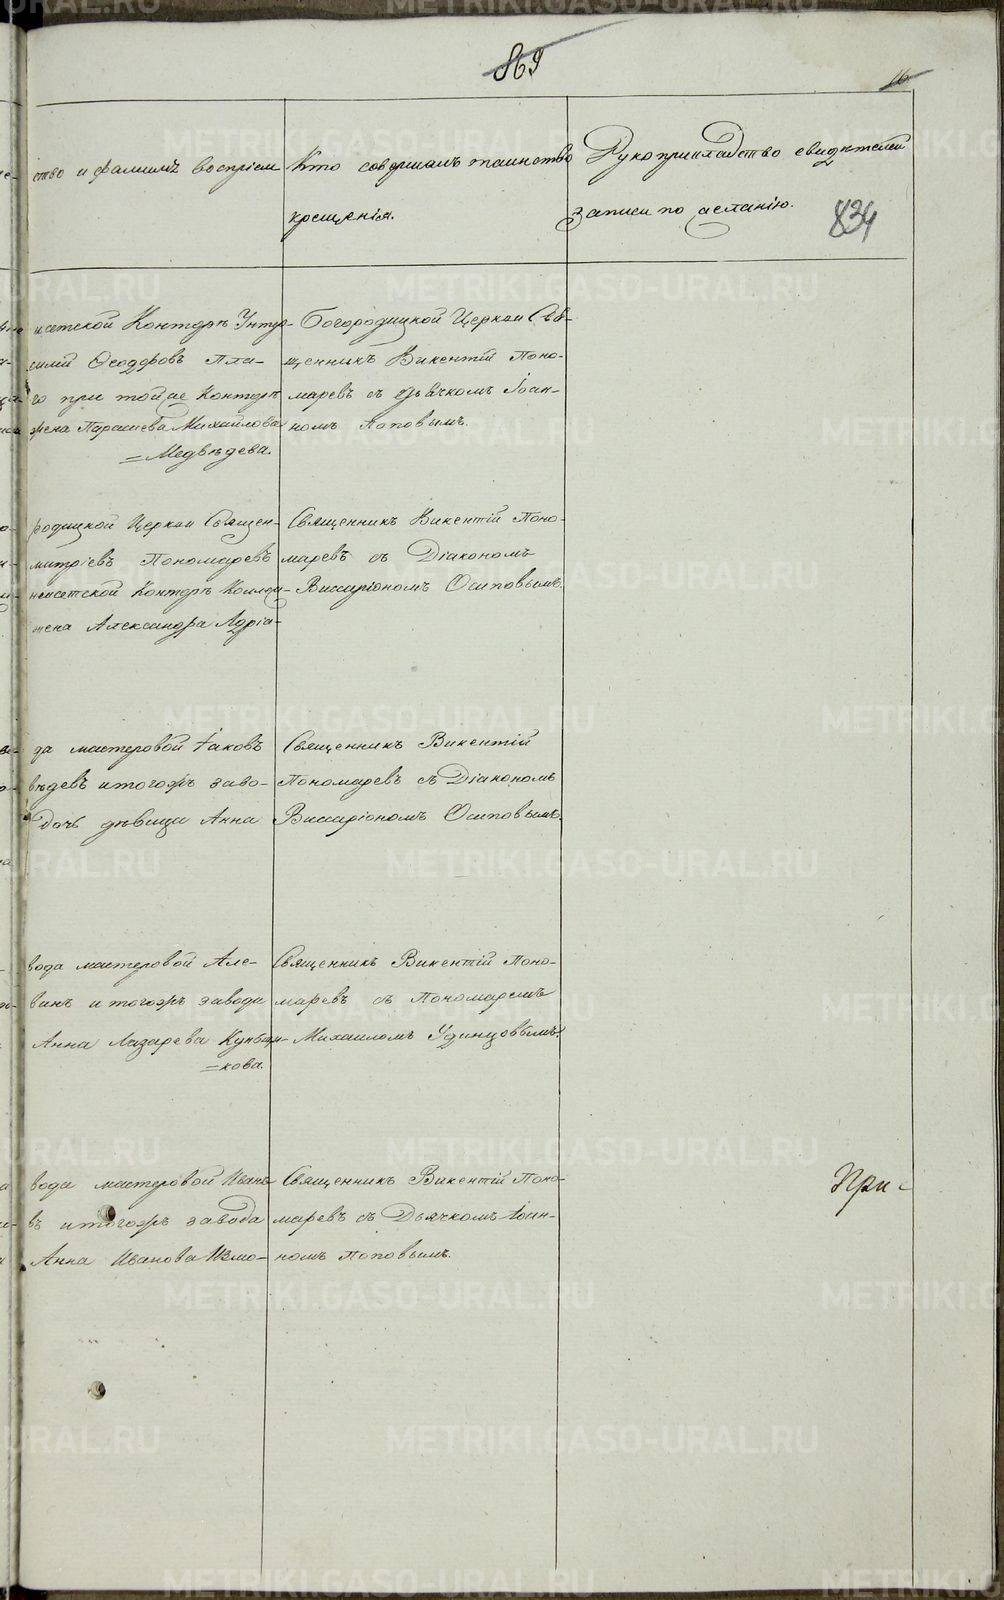 869
16
ство и фамилѣ воспріем
Кто совершалъ таинство
крещенія.
Рукоприкладство свидѣтелей
записи по желанію.
834
исетской Конторѣ Унтер-
силій Ѳеодоровъ Пла-
го при той же Конторѣ
жена Парасева Михайлова
=Медвѣдева.
Богородицкой Церкви Свя-
щенникъ Викентій Поно-
маревъ съ дьячкомъ Іоан-
номъ Поповымъ.
родицкой Церкви Священ-
митріевъ Пономаревъ
неисетской Конторѣ
жена Александра Адріа-
Священникъ Викентій Поно-
маревъ съ Діакономъ
Виссаріономъ Осиповымъ.
да мастеровой Іаковъ
вѣдевъ и тогожъ заво-
Дочь дѣвица Анна
Священникъ Викентій
Пономаревъ съ Діакономъ
Виссаріономъ Осиповымъ.
вода мастеровой Але-
ванъ и тогожъ завода
Анна Лазарева
=кова.
Священникъ Викентій Поно-
маревъ съ Пономаремъ
Михаиломъ Удинцовымъ.
вода мастеровой Иванъ
въ и тогожъ завода
Анна Иванова Измо-
Священникъ Викентій Поно-
маревъ съ Дьячкомъ Іоан-
номъ Поповымъ.
При-
METRIKI.GASO-URAL.RU